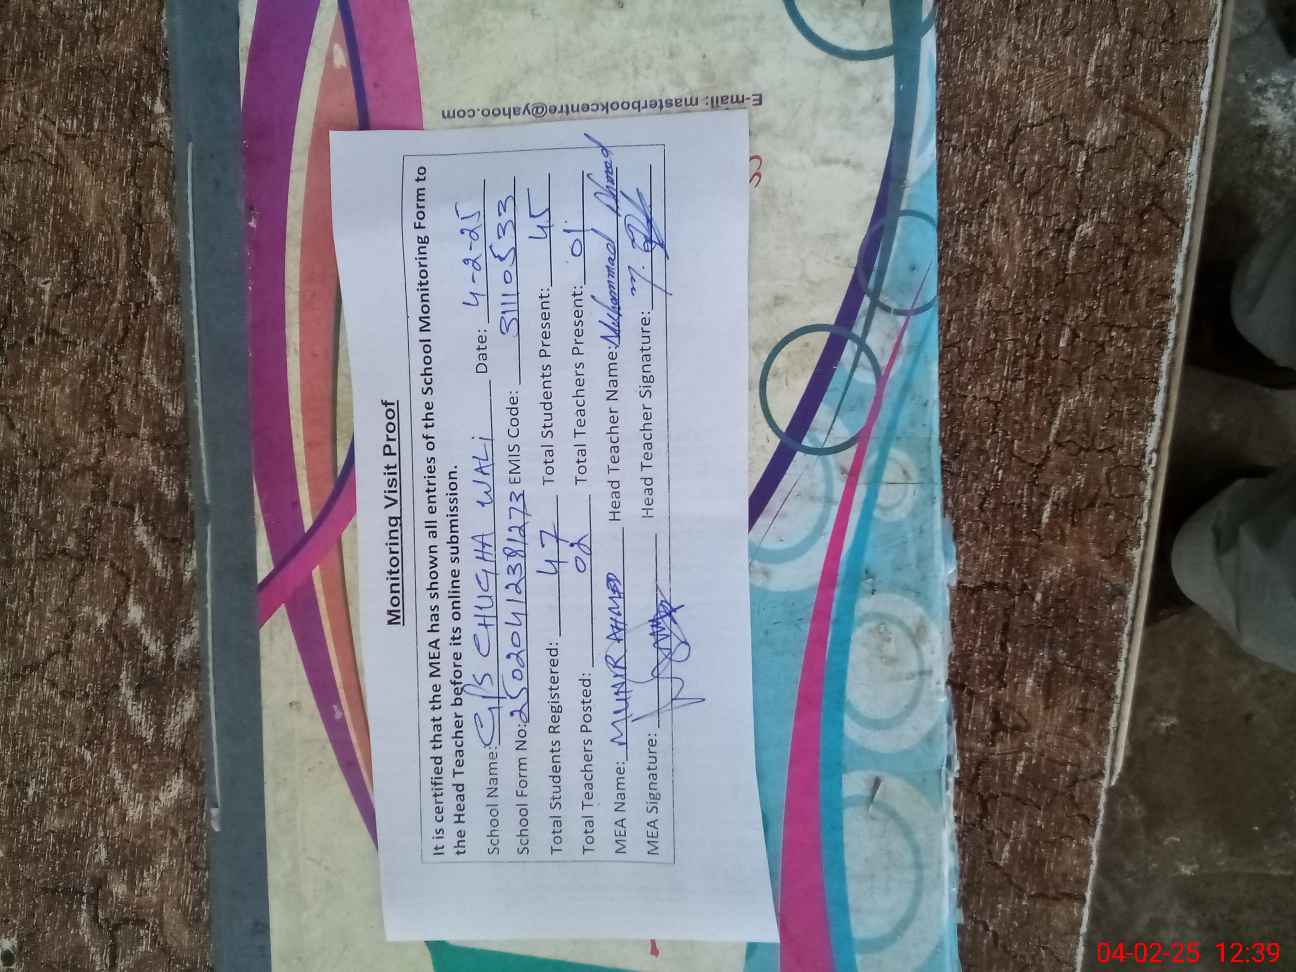 Monitoring Visit Proof
It is certified that the MEA has shown all entries of the School Monitoring Form to
the Head Teacher before its online submission.
School Name: G/S CHUGHA WALi Date: 4-2-25
School Form No: 25020412381273 EMIS Code: 31110533
Total Students Registered: 47 Total Students Present: 45
Total Teachers Posted: 02 Total Teachers Present: 01
MEA Name: MUNIR AHMED Head Teacher Name: Muhammad Ahmad
MEA Signature: Head Teacher Signature:
E-mail: masterbookcentre@yahoo.com
04-02-25 12:39